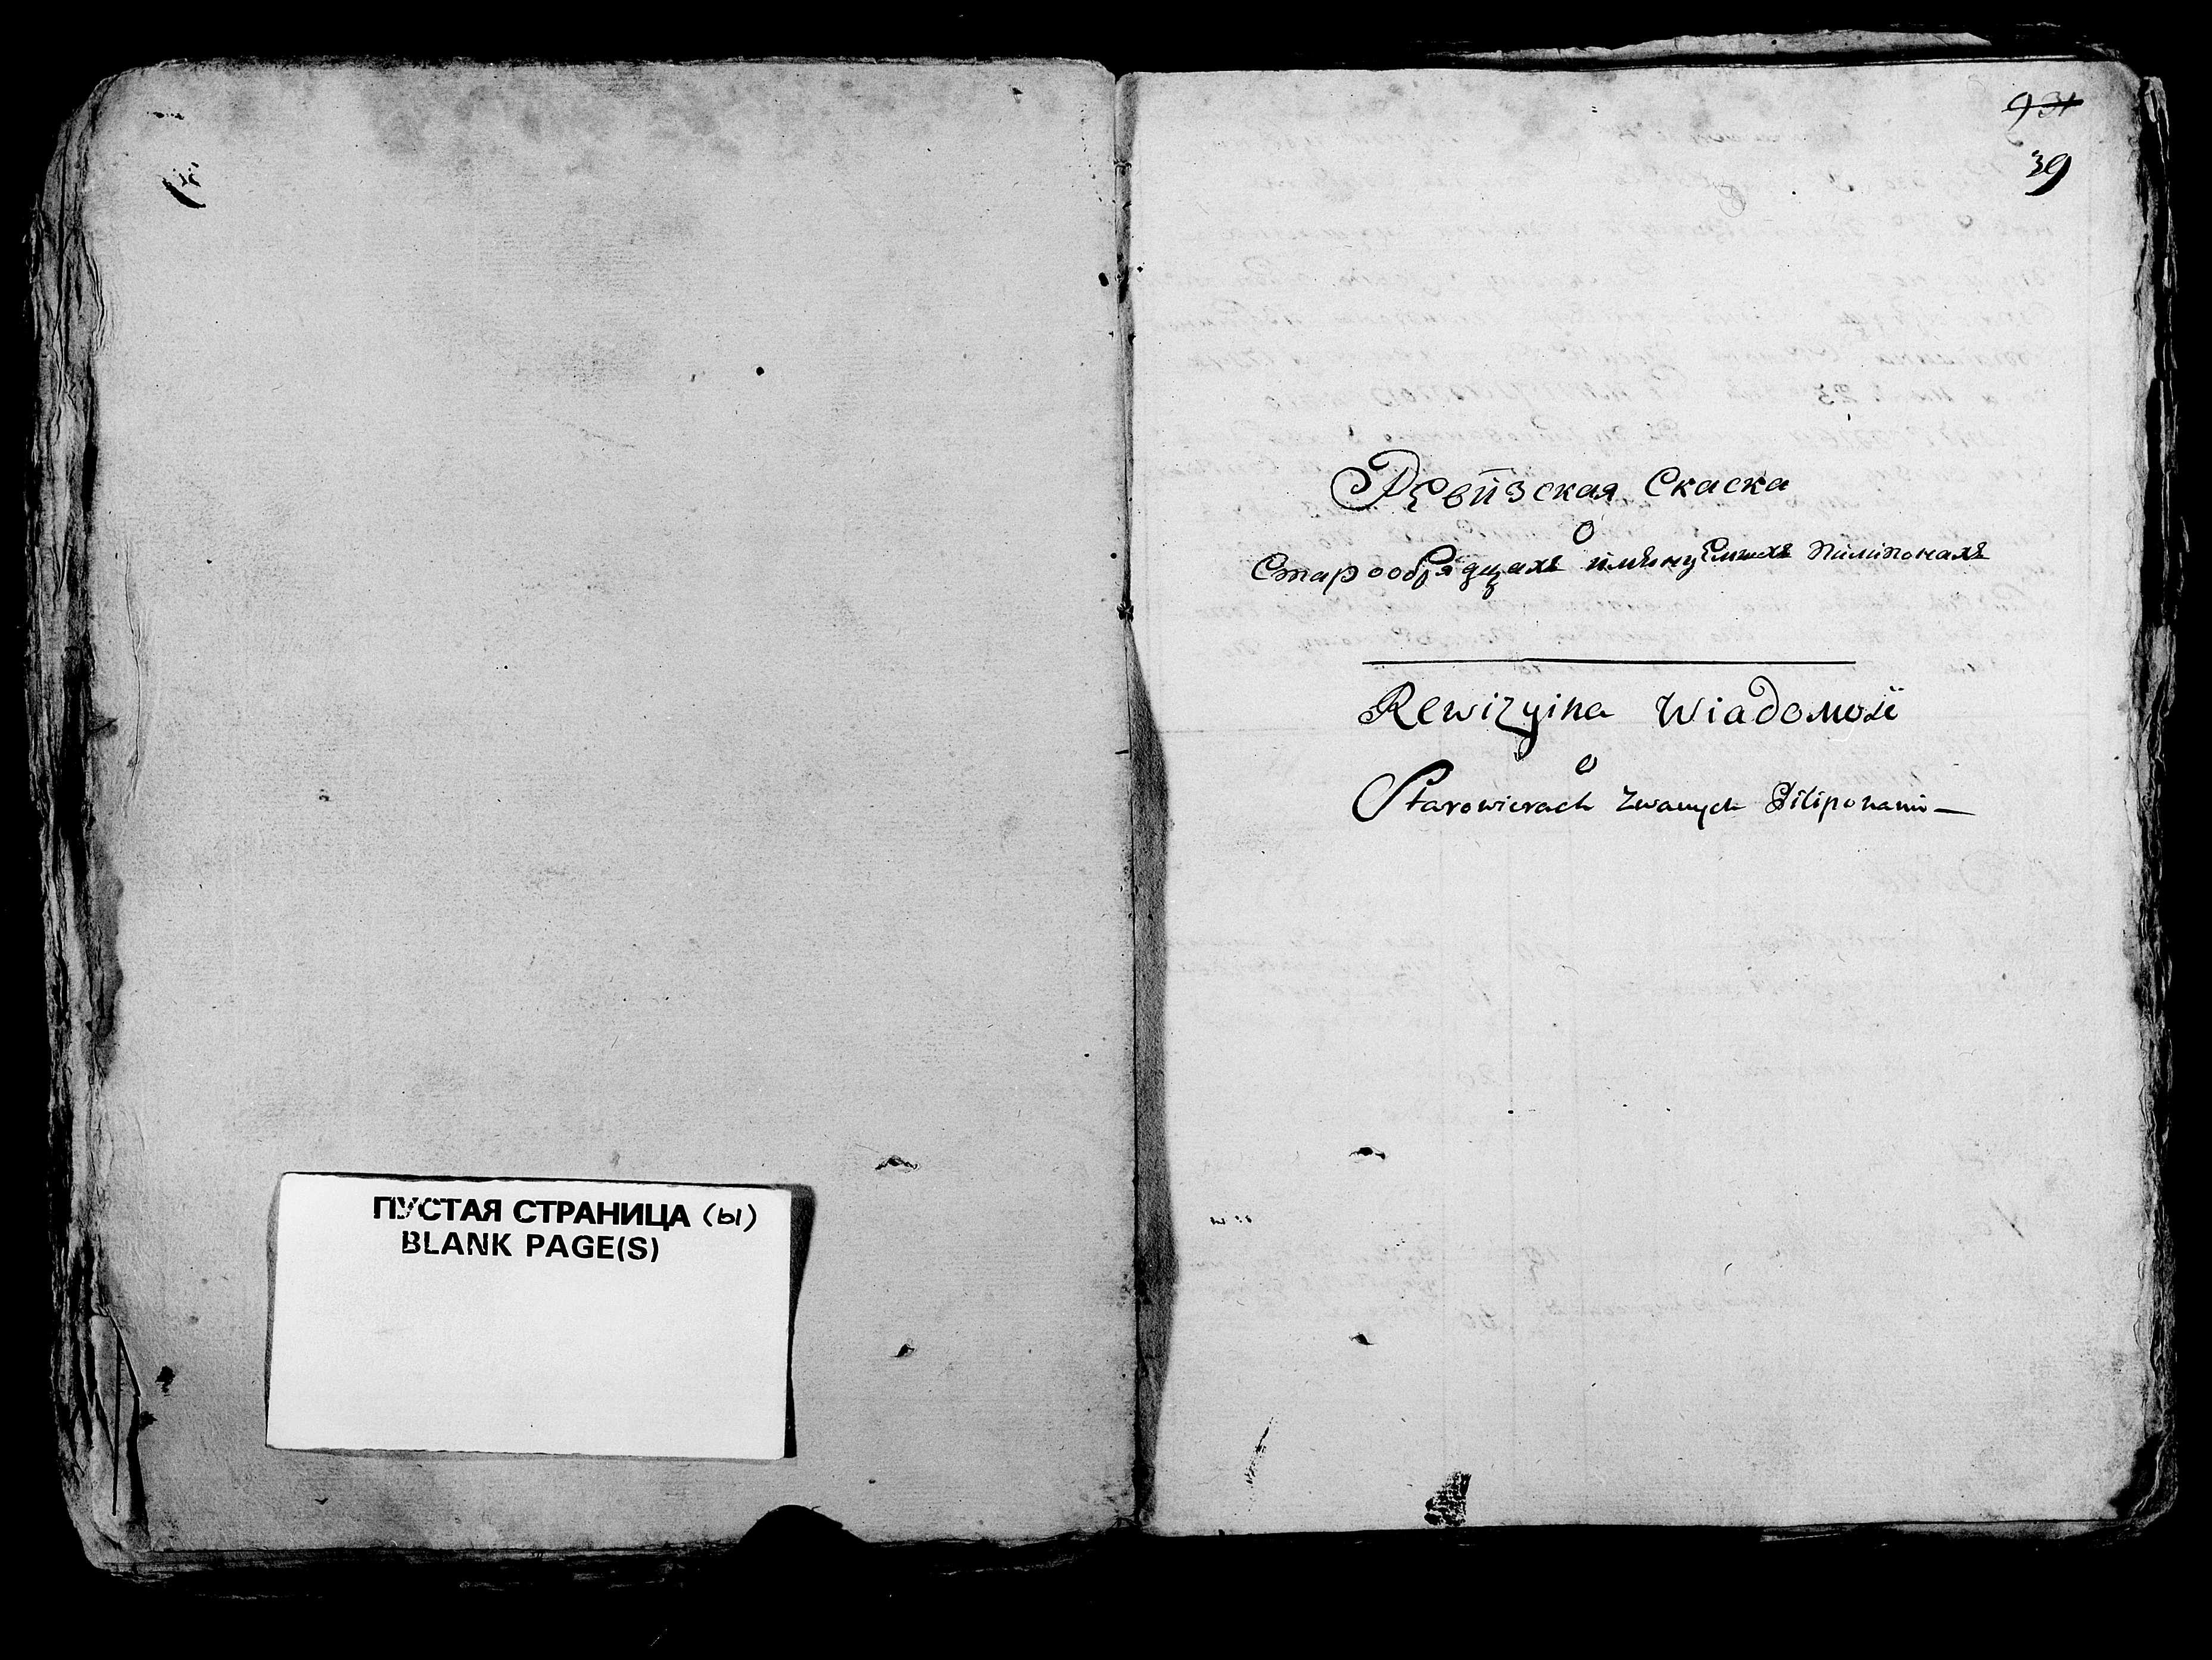 ПУСТАЯ СТРАНИЦА (ы)
BLANK PAGE(S)
931
39
Ревизская Скаска
О
Старообрядцахъ имѣнуемихъ пилипонахъ
Rewizyina Wiadomość
o
Starowierach zwanych Piliponami